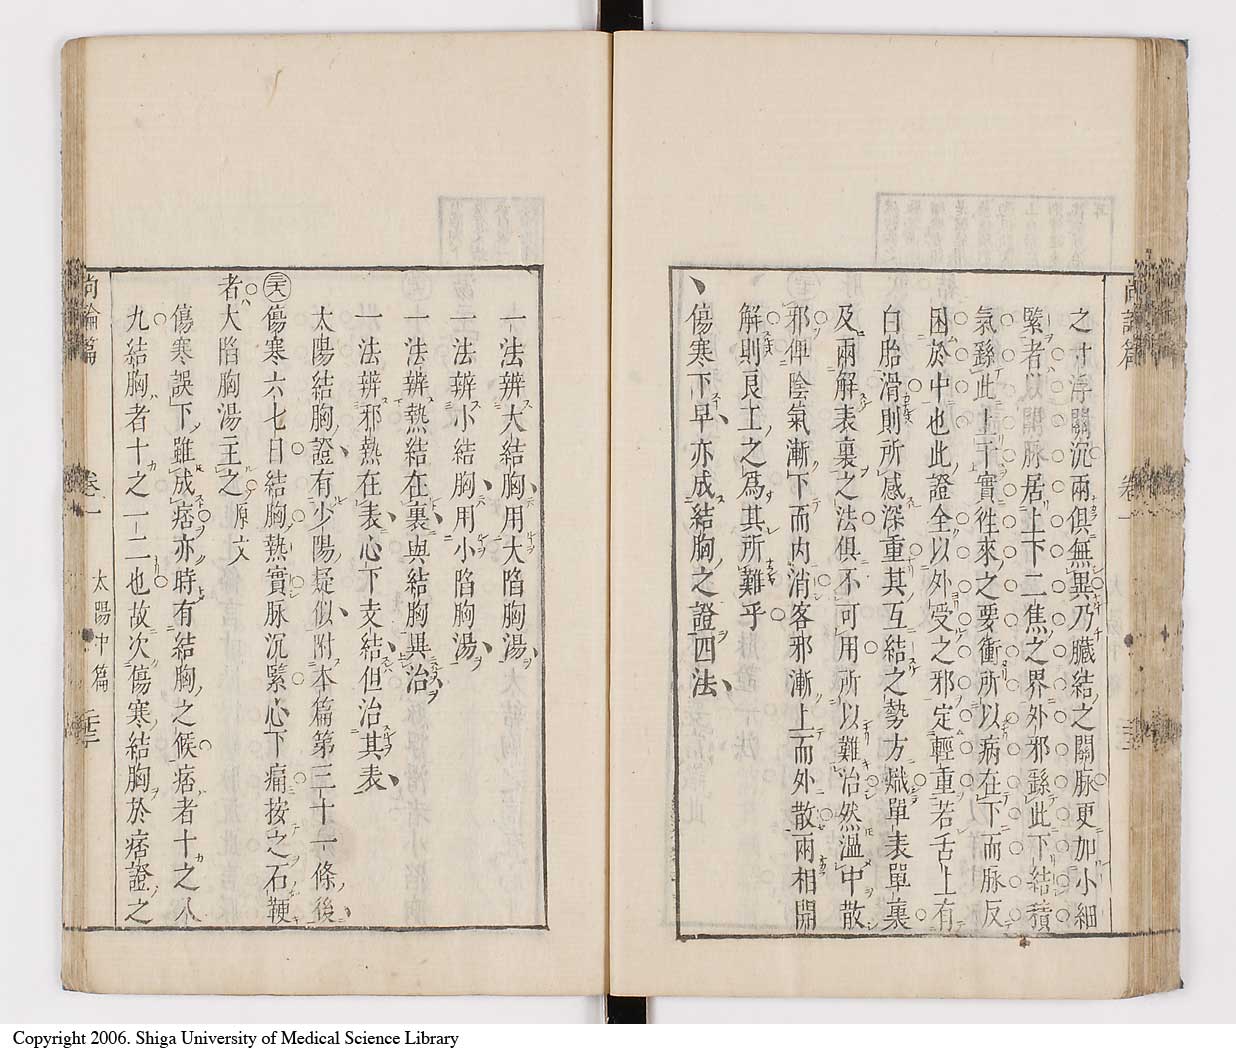 之寸浮關沉兩俱無異乃臟結之關脉更加小細
緊者以關脉居上下二焦之界外邪繇此下結積
氣繇此上干實徃來之要衝所以病在下而脉反
困於中也此證全以外受之邪定輕重若舌上有
白胎滑則所感深重其互結之勢方熾單表單裏
及兩解表裏之法俱不可用所以難治然溫中散
邪俾陰氣漸下而內消客邪漸上而外散兩相開
解則良工之爲其所難乎
傷寒下早亦成結胸之證四法
尚論篇
卷一
一法辨大結胸用大陷胸湯
一法辨小結胸用小陷胸湯
一法辨熱結在裏與結胸異治
一法辨邪熱在表心下支結但治其表
太陽結胸證有少陽疑似附本篇第三十一條後
傷寒六七日結胸熱實脉沉緊心下痛按之石鞕
者大陷胸湯主之原文
傷寒誤下雖成痞亦時有結胸之候痞者十之八
九結胸者十之一二也故次傷寒結胸於痞證之
尚論篇
卷一
太陽中篇
Copyright 2006. Shiga University of Medical Science Library